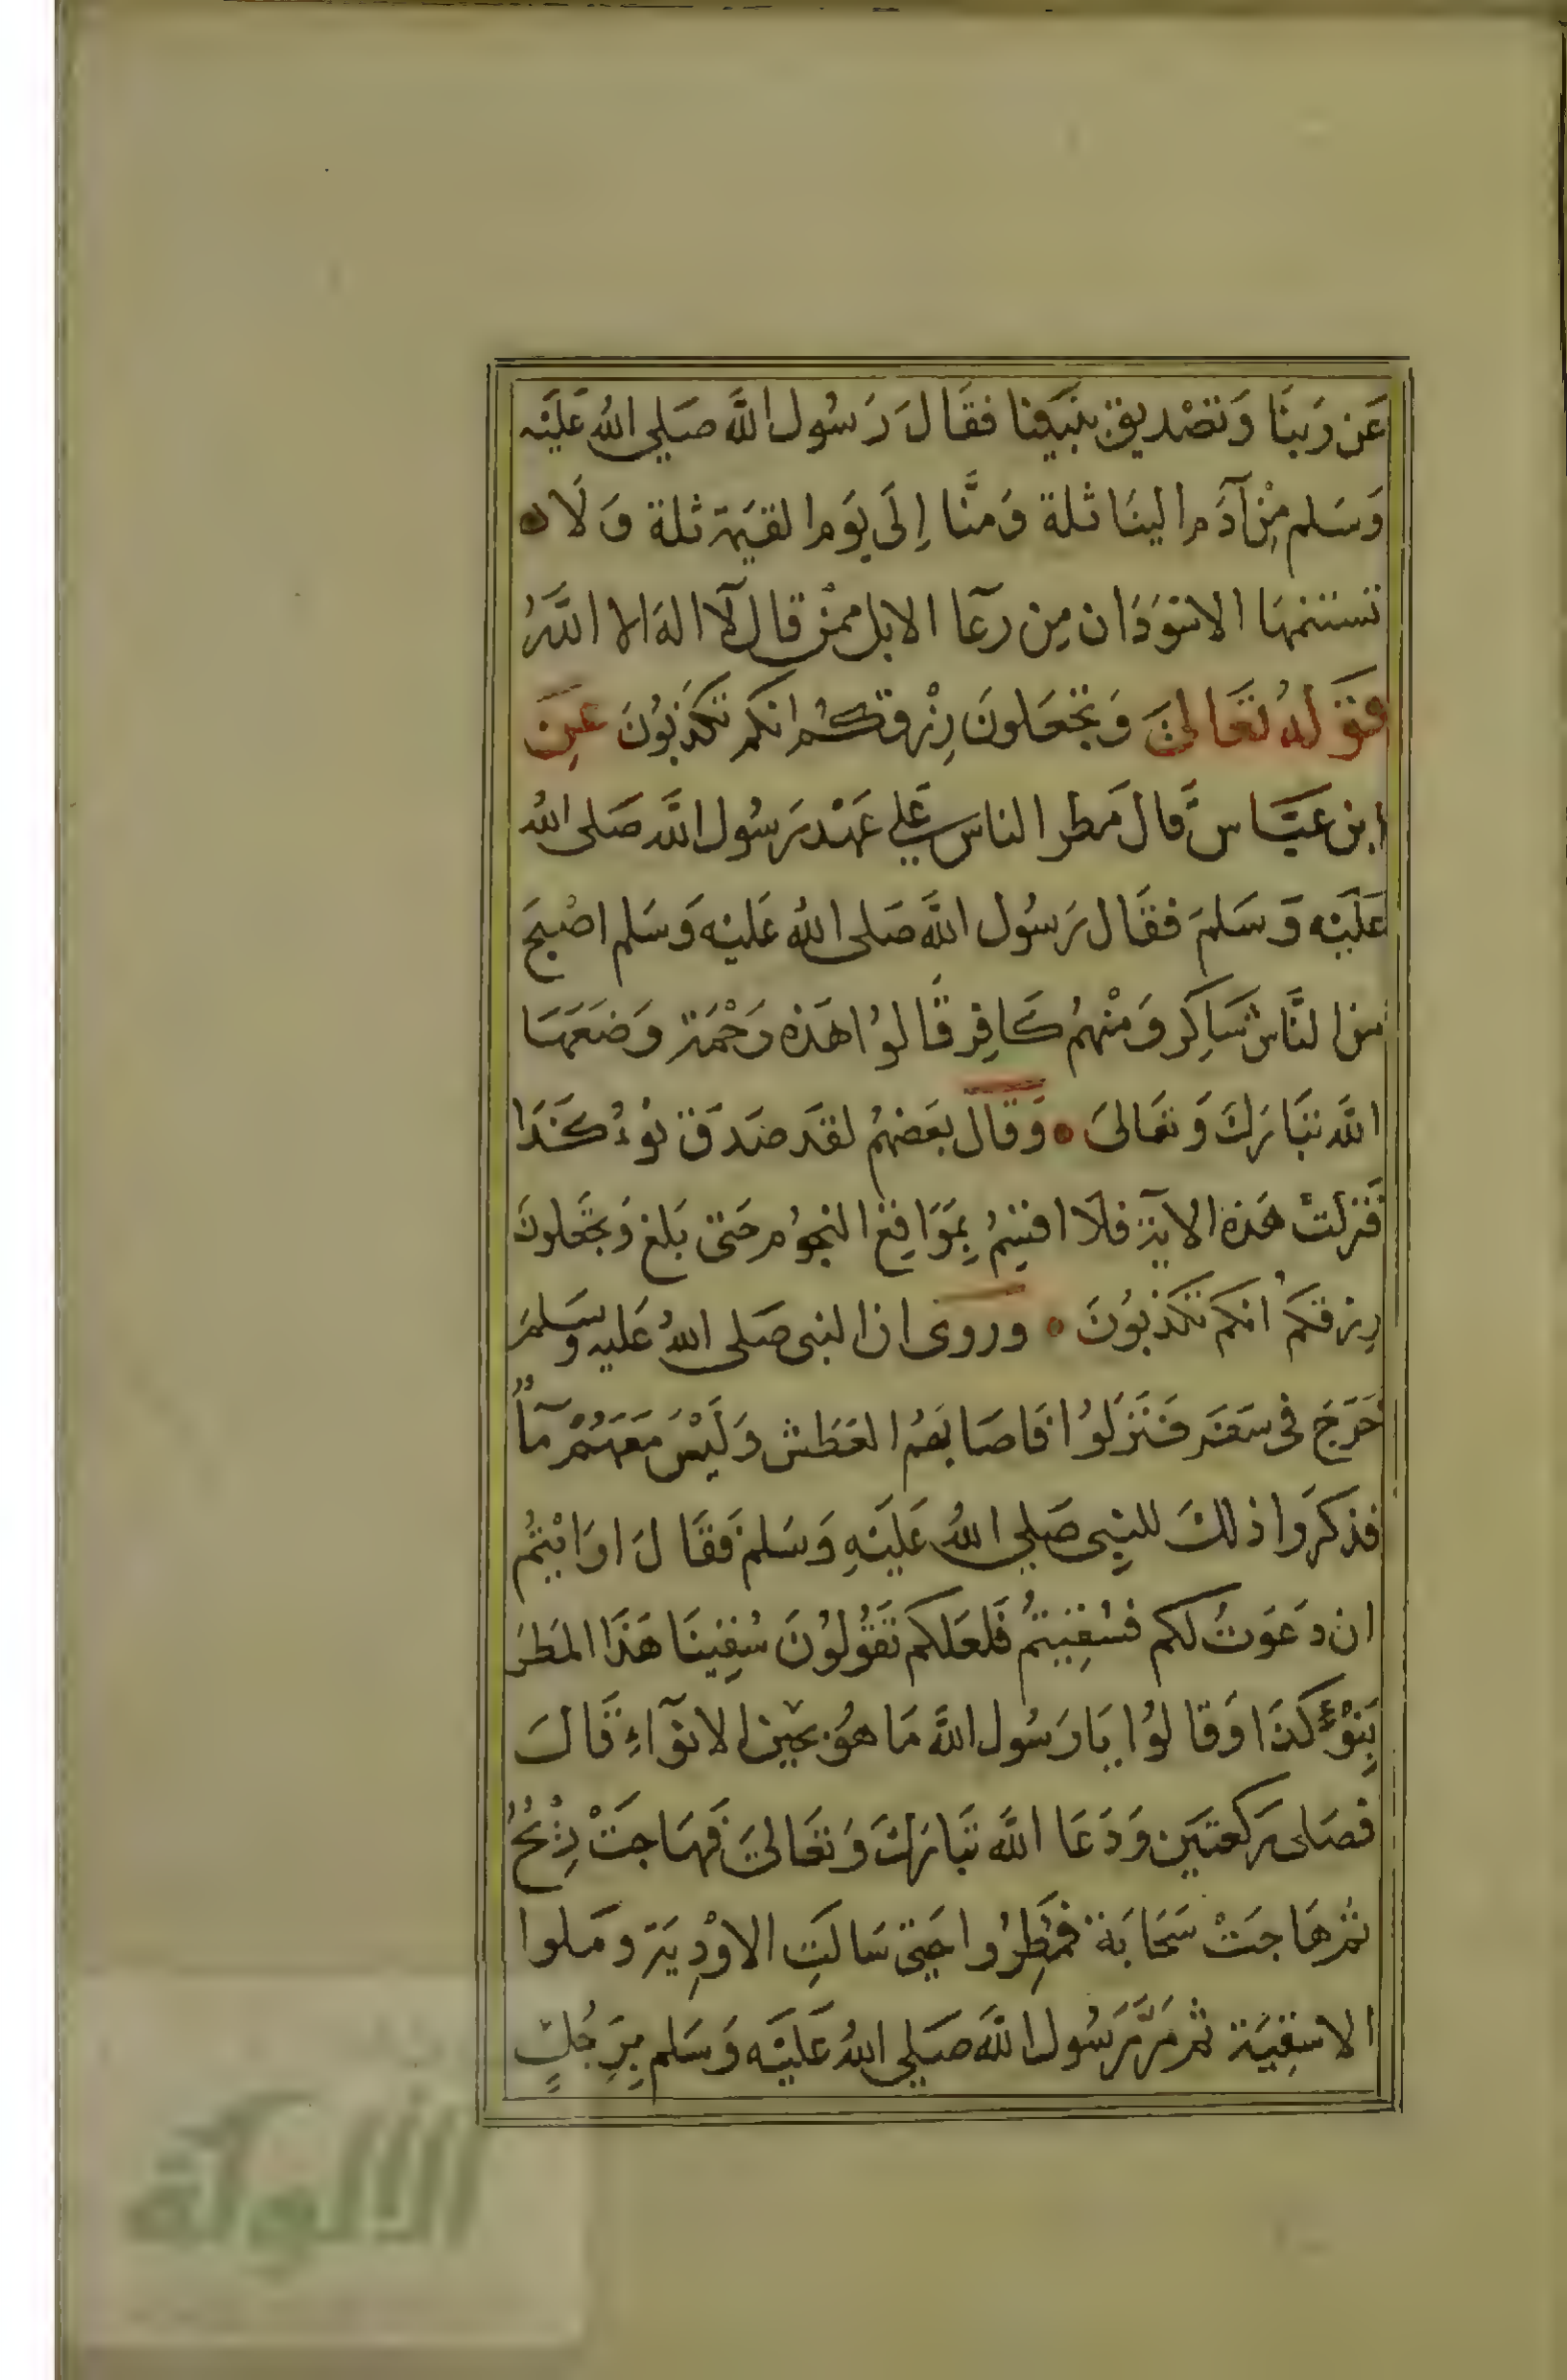 عَن رَبنَّا وَتصْديق بنَبيّنا فقَالَ رَسُول اللَّه صَلي اللهُ عَليْه
وَسَلم مِنْ آدَم الينَا ثلة وَمنَّا إِلَى يَوم القيمَة ثلة وَلَا
تستتمهَا الا سَوَدَان مِن رعآ الابل ممنْ قال لآ اله الا اللَّهُ
قوَلهُ تعَالىَ وَتجعَلونَ رِزْقكُم انكم تكَذبُونَ عَن
ابن عَبَّاس قَال مَطر الناس عَلي عَهْد رَسُول اللَّه صَلى اللهُ
عَليْه وَسَلمَ فقَال رَسُول اللَّه صَلى اللهُ عَليْه وَسَلم اصْبحَ
من النَّاس شَاكِر وَمنْهمُ كَافِر قَالوُا هَذه رَحْمَة وَضعَهَا
اللَّه تبَارَكَ وَتعَالىَ • وَقَال بعَضهُم لقَد صَدَق نوْءُ كَذَا
فَنزلتْ هَذه الآية فلَا اقسِمُ بِمَوَاقِعِ النجوُم حَتى بَلغ وَتجعَلونَ
رِزقكُم انكم تكَذبُونَ • وروى ان النبى صَلى اللهُ عَليه وسَلمَ
خَرَجَ فى سَفَر فَنَزَلوُا فَاصَابَهمُ العَطَش وَليْسَ مَعَهُمْ مَآءٌ
فذكرَوا ذلكَ للنبِى صَلي اللهُ عَليْهِ وَسَلم فَقَالَ ارَايْتُم
ان دَعَوتُ لكم فسُقِيتمُ فَلعَلكم تَقُولُونَ سُقِينَا هَذَا المطَرَ
بِنَوْءِ كذَا وَقالوُا يَا رَسُول اللَّه مَا هُوَ بحين الانوَآءِ قَالَ
فصَلى رَكعتَين وَدَعَا اللَّه تبَارَكَ وَتعَالىَ فَهَاجَتْ رِيْحٌ
ثم هَاجَتْ سَحَابَة فمُطِرُوا حَتى سَالَتِ الاوْدِيَة وملَوا
الاسقِيَة ثم مَرَّ رَسُول اللَّه صَلي اللهُ عَليْه وَسَلم بِرَجُلٍ
الألوكة